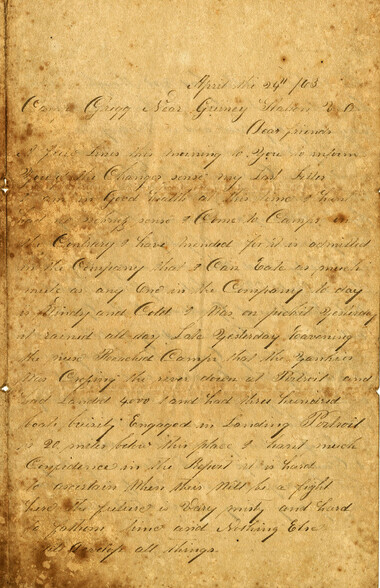 April the 24th /63
Camp Gregg Near Guiney Station
Dear friends
A few lines this morning to you to inform
you of the Changes sense my Last Letter
I am in Good health at this time I have
had no sense I Come to Camp
the Contrary I have mended for it is admitted
in the Company that I Can Eate as much
as any One in the Company to day
is Windy and Cold I Was on picket Yesterday
it rained all day Late Yesterday Eavening
the news Reached Camp that the Yankies
Was Crosing the river down at Portroil and
had Landed 4000 and had three hundred
boats buisily Engaged in Landing Portroil
is 20 miles below this place I havnt much
Confidence in the Report it is hard
to ascertain When thire Will be a fight
here the future is Vary misty and hard
to fathom time and Nothing Else
will develope all things.